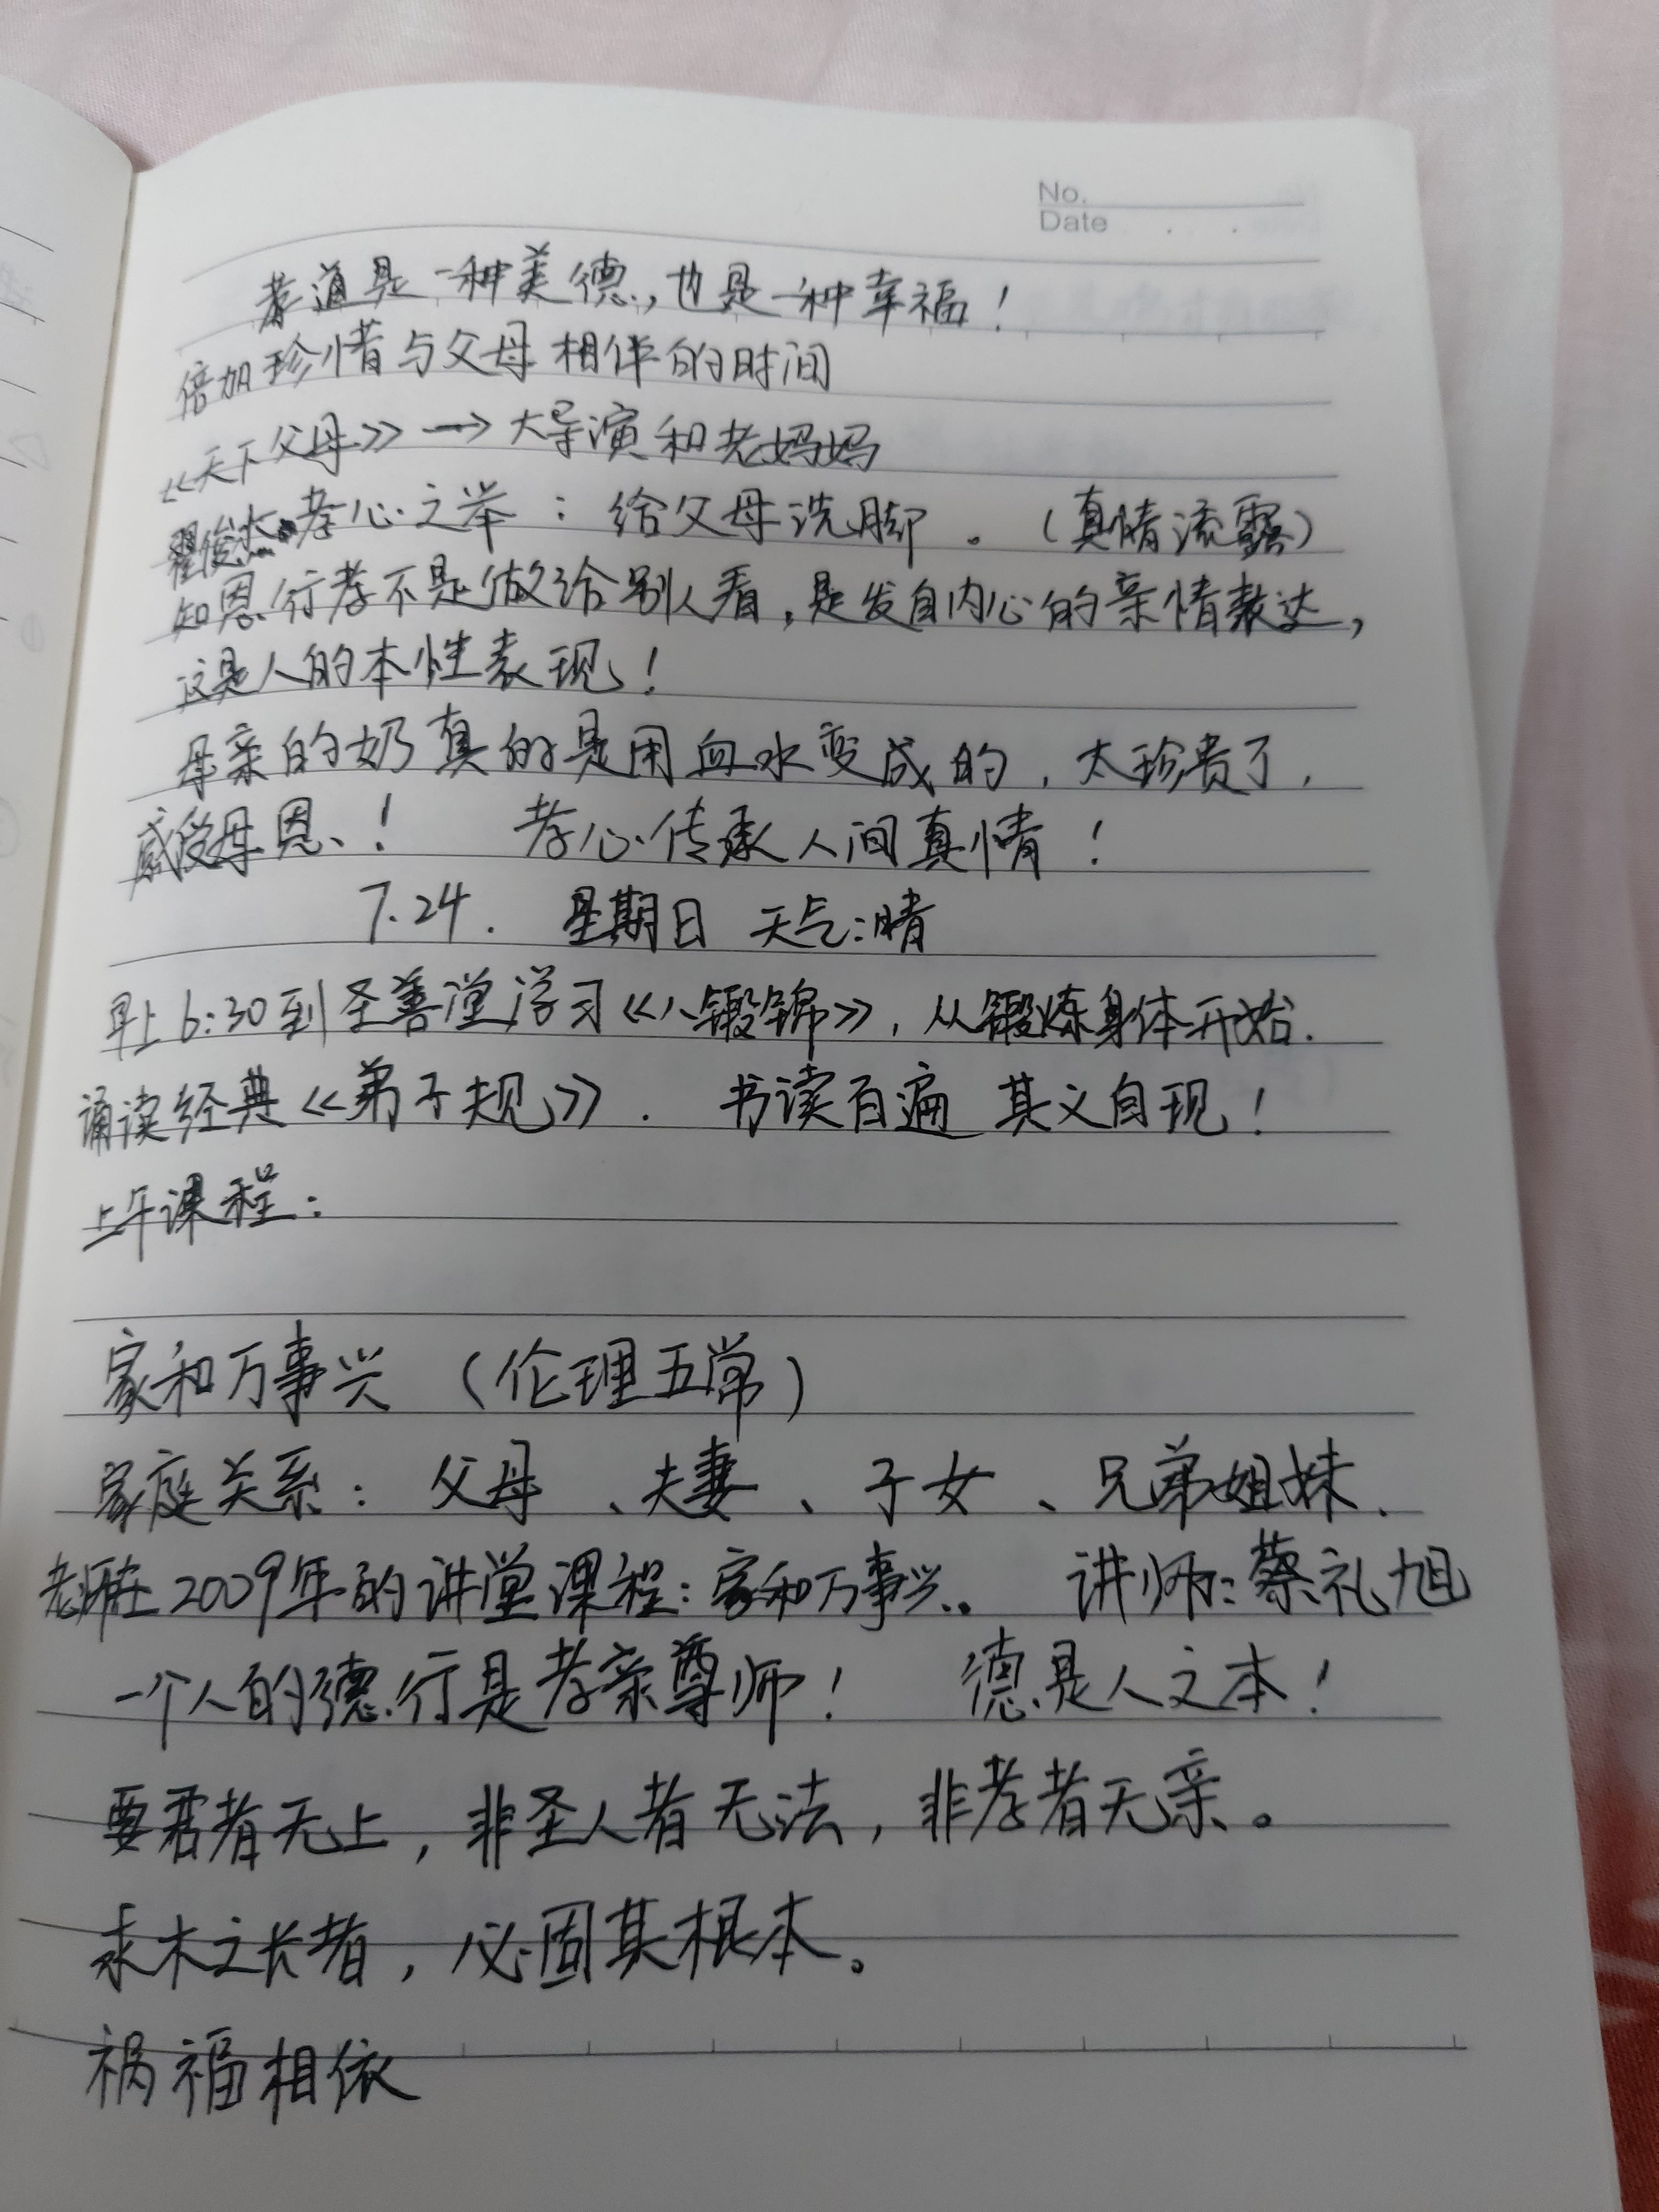 No.
Date
孝道是一种美德,也是一种幸福!
倍加珍惜与父母相伴的时间
《天下父母》→大导演和老妈妈
翟俊杰 孝心之举:给父母洗脚。(真情流露)
知恩行孝不是做给别人看,是发自内心的亲情表达,
这是人的本性表现!
母亲的奶真的是用血水变成的,太珍贵了,
感受母恩、! 孝心传承人间真情!
7.24. 星期日 天气:晴
早上6:30到圣善堂学习《八锻锦》,从锻炼身体开始.
诵读经典《弟子规》. 书读百遍 其义自现!
上午课程:
家和万事兴 (伦理五常)
家庭关系: 父母、夫妻、子女、兄弟姐妹.
老师在2009年的讲堂课程:家和万事兴。 讲师:蔡礼旭
一个人的德行是孝亲尊师! 德是人之本!
要君者无上,非圣人者无法,非孝者无亲。
求木之长者,必固其根本。
祸福相依